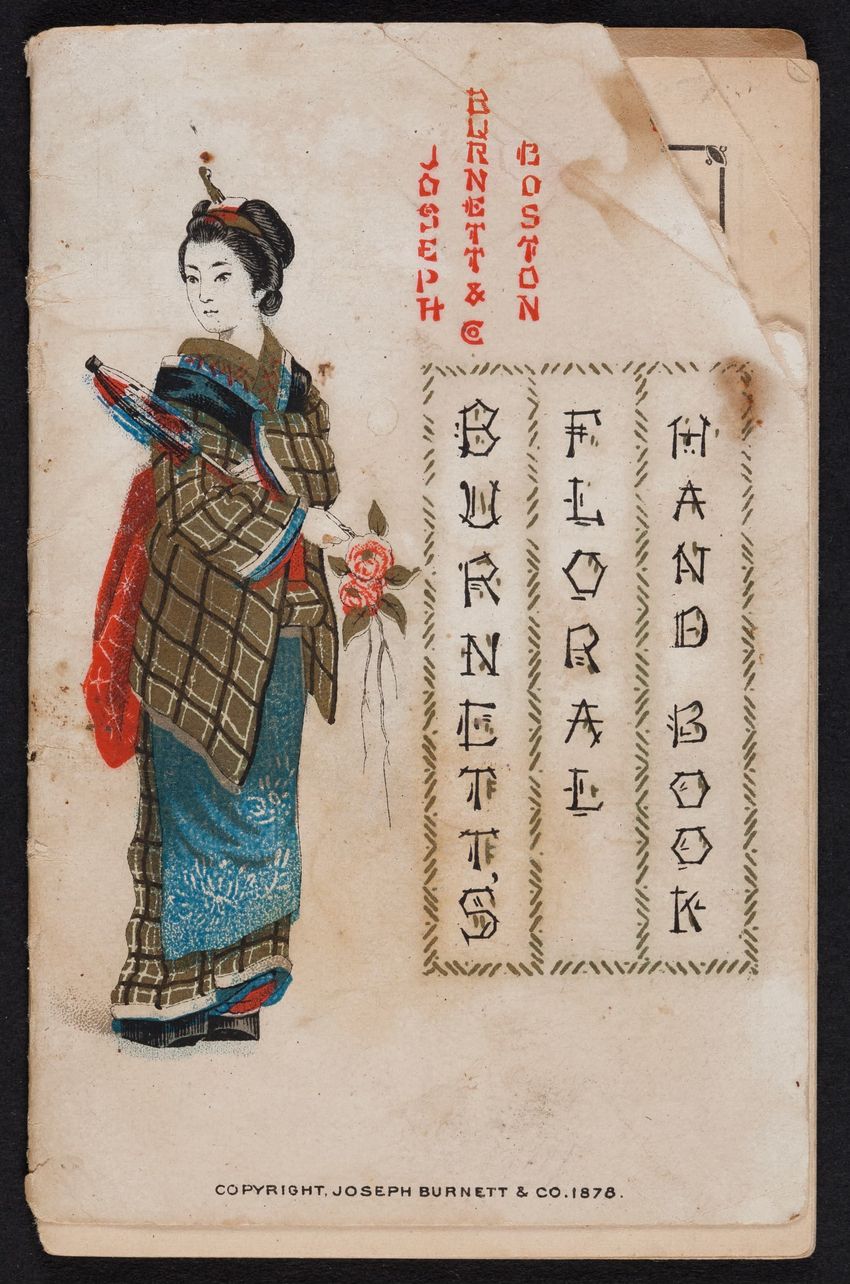 JOSEPH
BURNETT & CO
BOSTON
BURNETT'S
FLORAL
HAND BOOK
COPYRIGHT, JOSEPH BURNETT & CO. 1878.